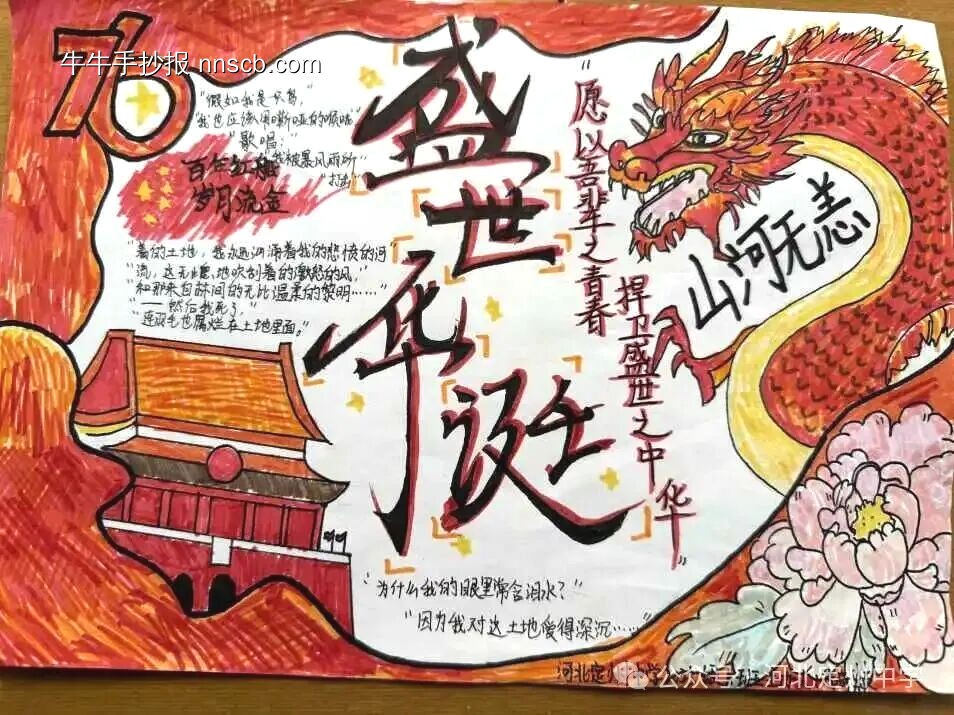 76
牛牛手抄报 nnscb.com
"假如我是一只鸟,"
"我也应该用嘶哑的喉咙"
"歌唱:"
被暴风雨所
"打击
百年红船
岁月流金
"着的土地,我永远汹涌着我的悲愤的河"
"流,这无止息地吹刮着的激怒的风,"
"和那来自林间的无比温柔的黎明……"
"——然后我死了,"
"连羽毛也腐烂在土地里面。"
盛世华诞
"愿以吾辈之青春
捍卫盛世之中华"
山河无恙
"为什么我的眼里常含泪水?"
"因为我对这土地爱得深沉……"
河北定
公众号·河北定州中学